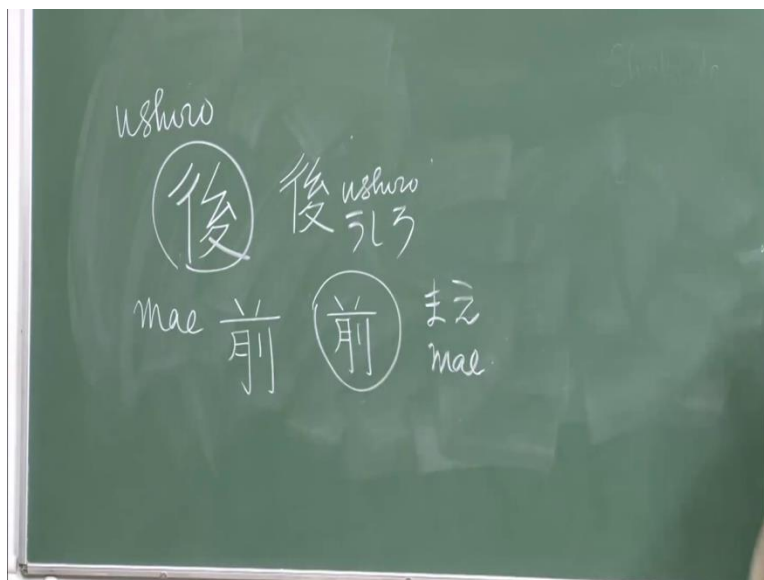 ushiro
後 後 ushiro
うしろ
mae 前 前 まえ
mae